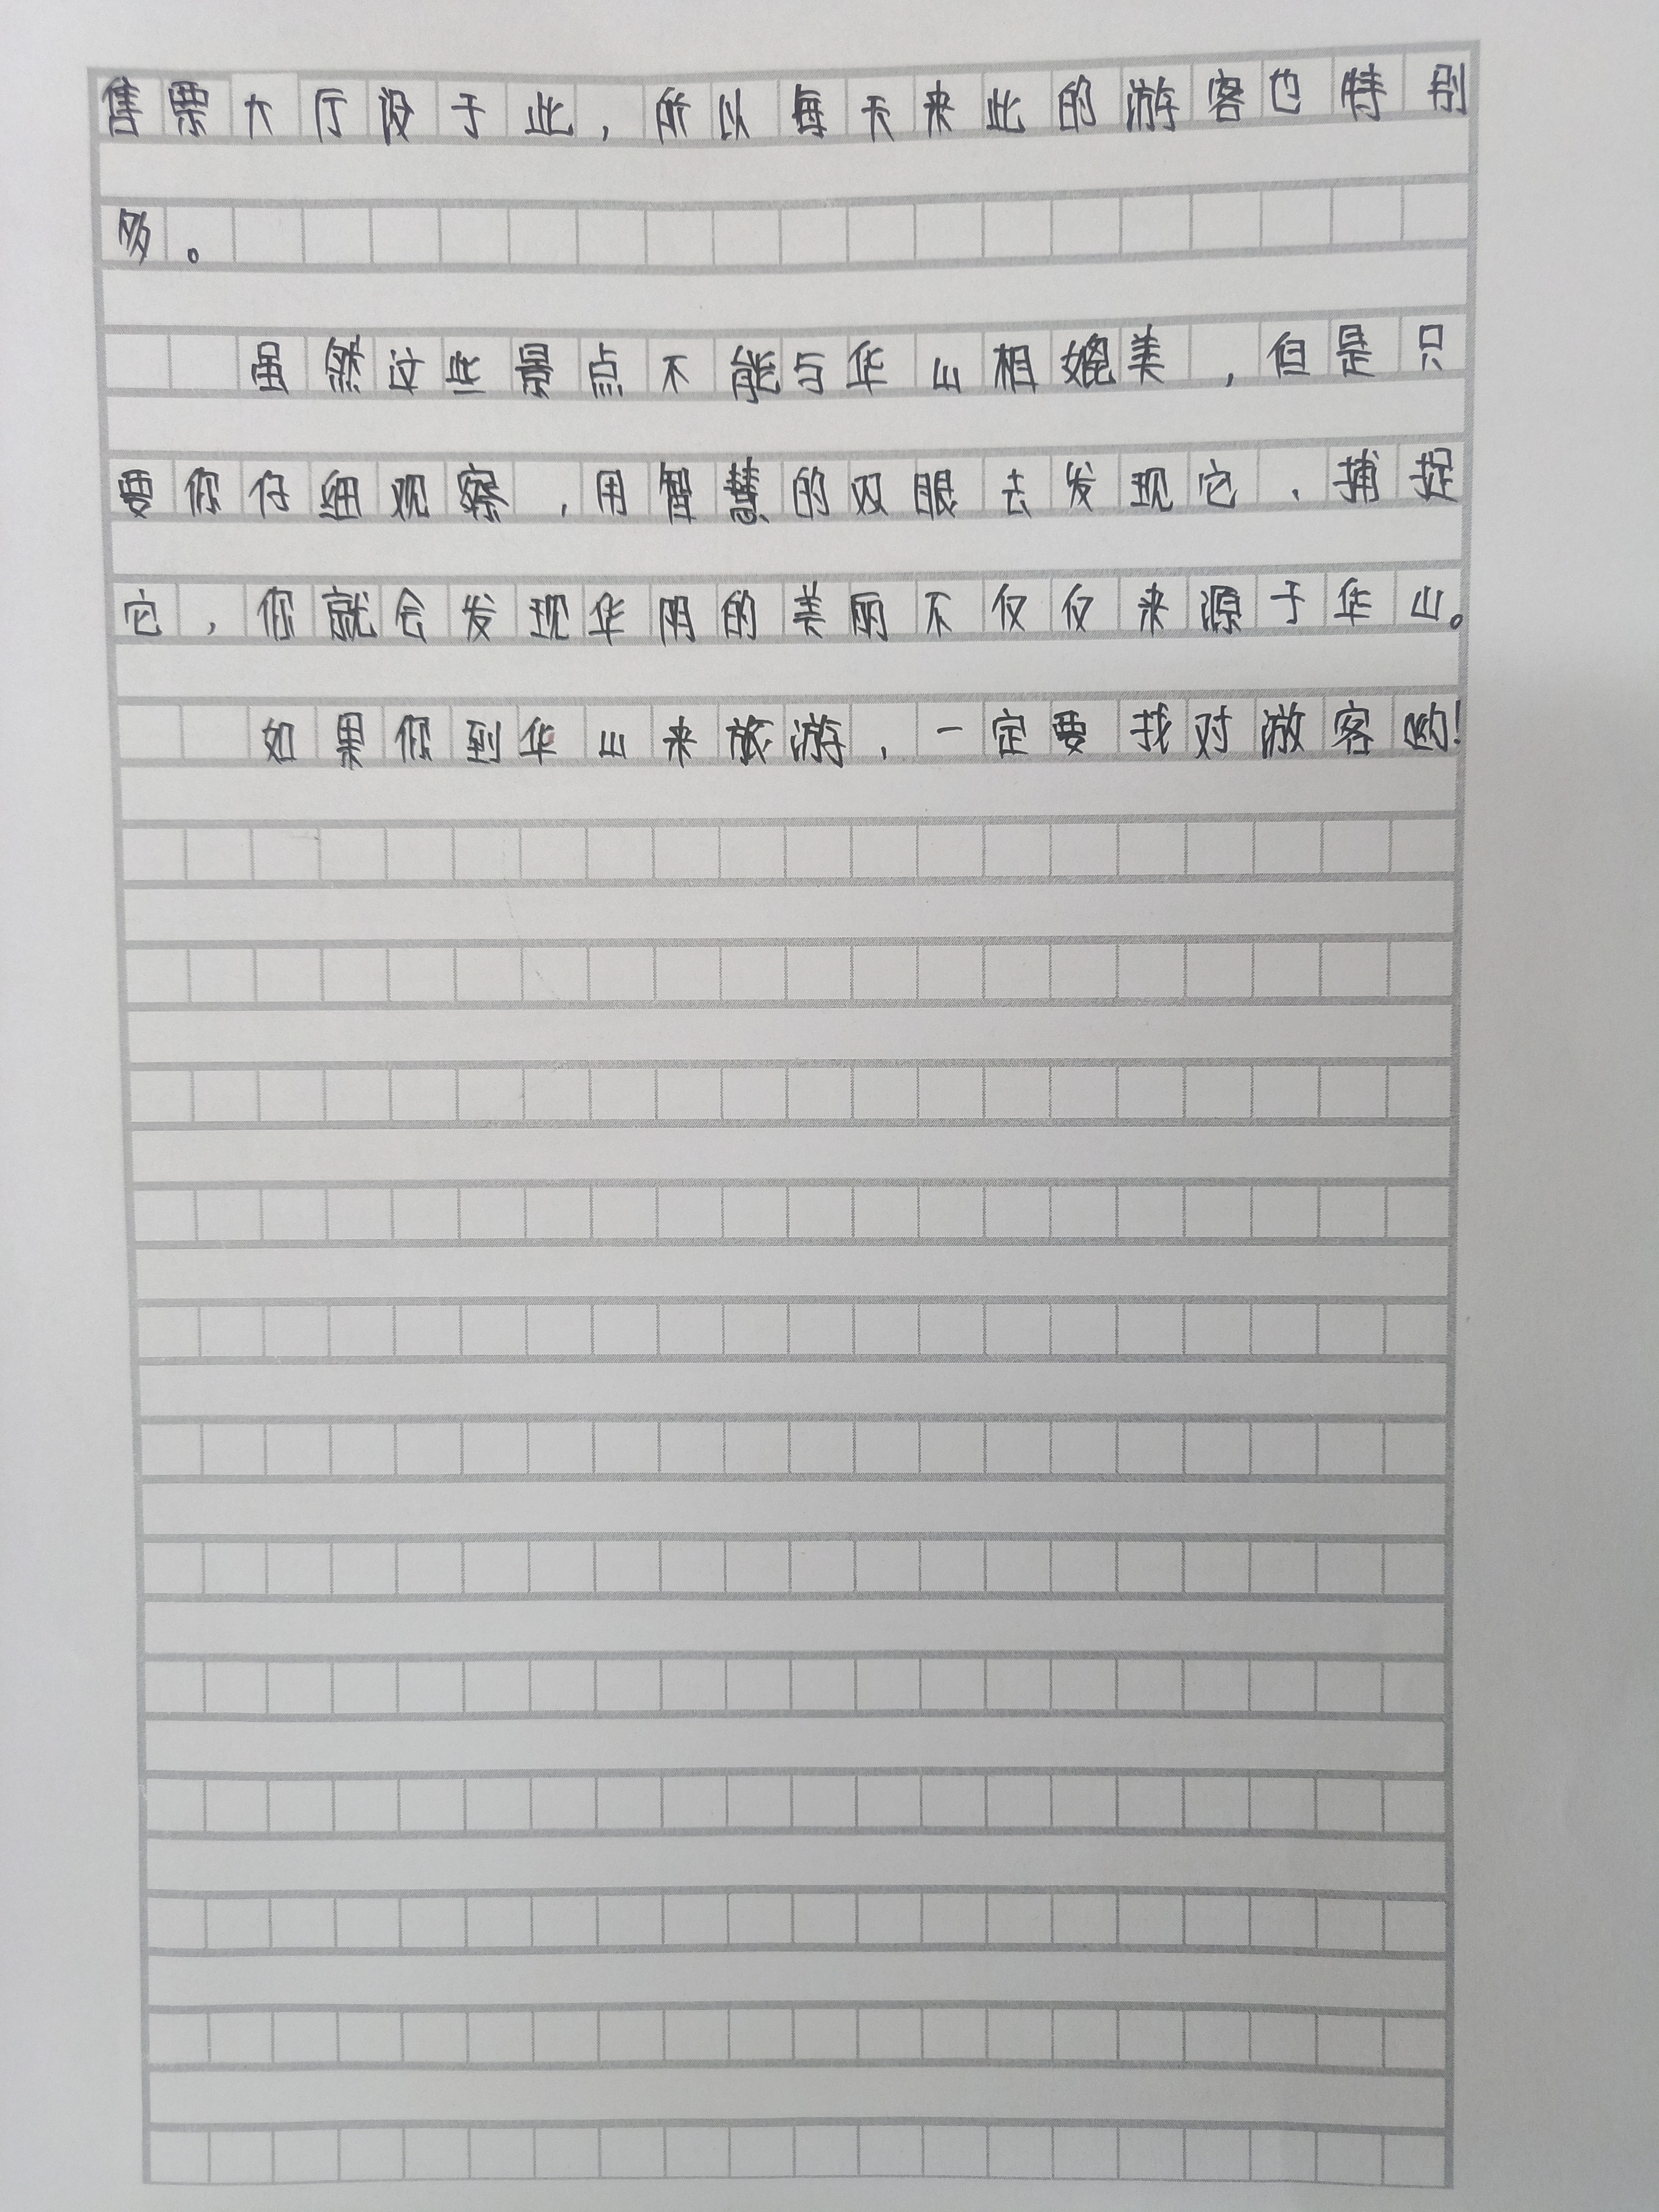 售票大厅设于此,所以每天来此的游客也特别
多。
虽然这些景点不能与华山相媲美,但是只
要你仔细观察,用智慧的双眼去发现它、捕捉
它,你就会发现华阴的美丽不仅仅来源于华山。
如果你到华山来旅游,一定要找对游客哟!